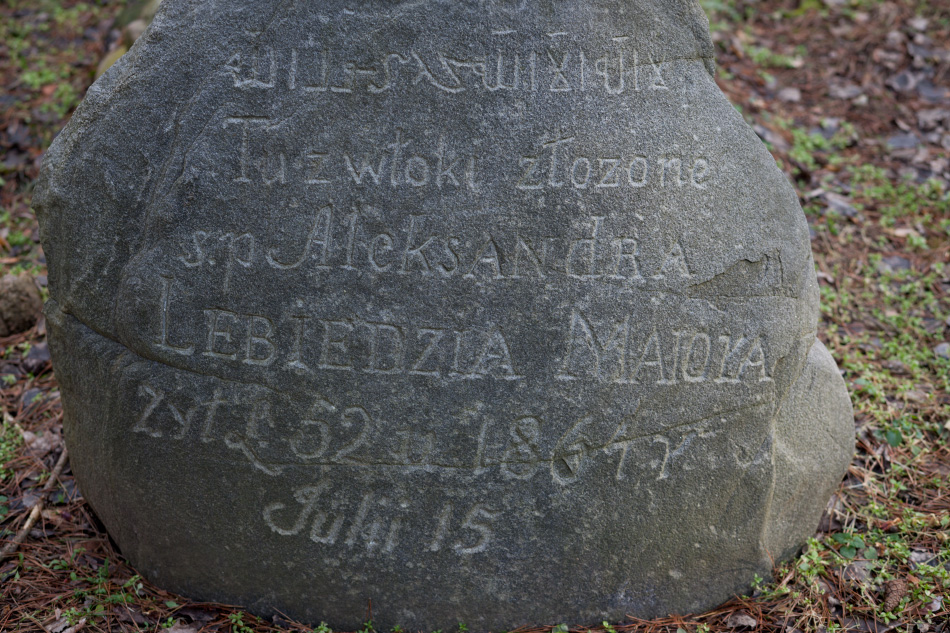 Tu z włoki złozone
s.p Aleksandra
Lebiedzia Maiora
żył L 52 u 1864 r.
Julii 15